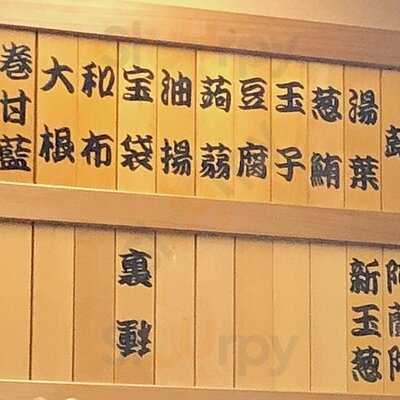 湯葉
葱鮪
玉子
豆腐
蒟蒻
油揚
宝袋
和布
大根
巻甘藍
新玉葱
裏
Sluurpy